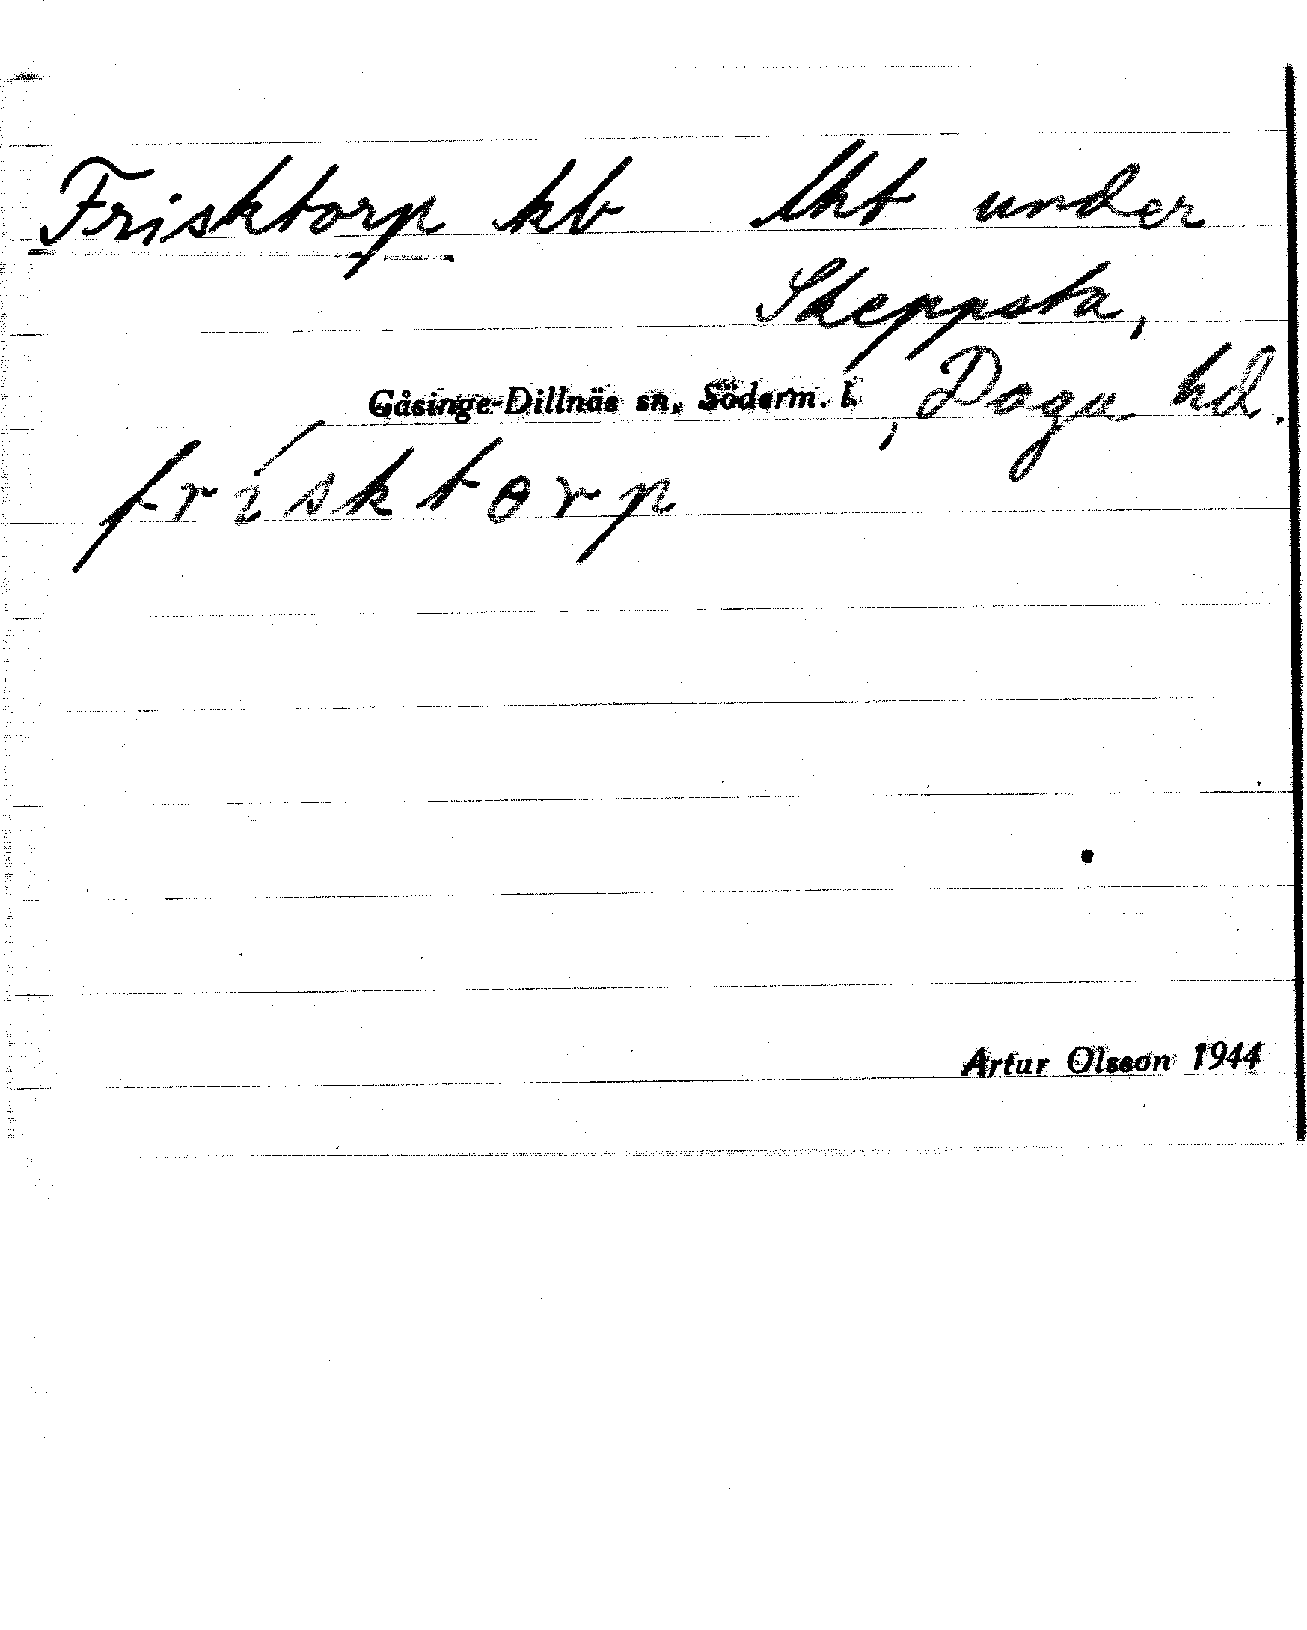 Frisktorp kb lht under
Skeppsta,
Gåsinge-Dillnäs sn, Söderm. l., Daga hd.
frísktorp
Artur Olsson 1944